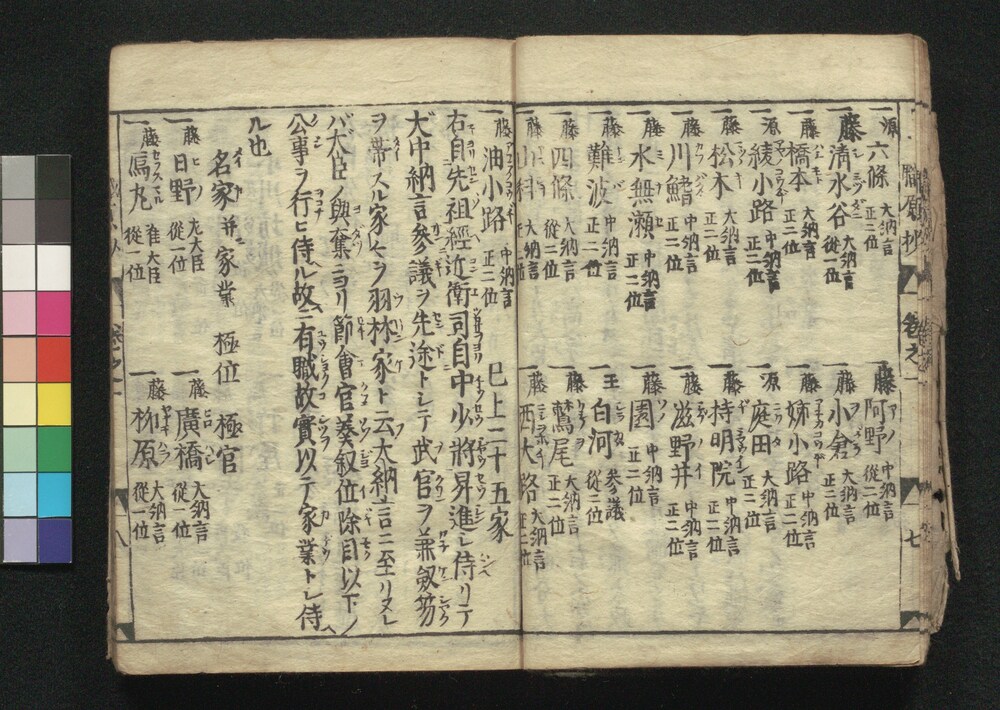 一源六條 大納言 正二位
一藤阿野 中納言 從二位
一藤清水谷 大納言 從一位
一藤小倉 大納言 正二位
一藤橋本 大納言 正二位
一藤姉小路 大納言 正二位
一源綾小路 中納言 正二位
一源庭田 大納言 正二位
一藤松木 大納言 正二位
一藤持明院 中納言 正二位
一藤川鰭 中納言 正二位
一藤滋野井 中納言 正二位
一藤水無瀬 中納言 正二位
一藤園 中納言 正二位
一藤難波 中納言 正二位
一王白河 參議 從二位
一藤四條 大納言 從二位
一藤鷲尾 大納言 正二位
一藤山科 大納言 正二位
一藤西大路 大納言 正二位
一藤油小路 中納言 正二位
巳上二十五家
右自先祖經近衛司自中少將昇進シ侍リテ
大中納言參議ヲ先途トシテ武官ヲ兼劔笏
ヲ帶スル家々ヲ羽林家ト云大納言ニ至リヌレ
バ大臣ノ與奪ニヨリ節會官奏叙位除目以下ノ
公事ヲ行ヒ侍ル故ニ有職故實以テ家業トシ侍
ル也
名家并家業 極位 極官
一藤日野 左大臣 從一位
一藤廣橋 大納言 從一位
一藤烏丸 准大臣 從一位
一藤柳原 大納言 從一位
卷之
七